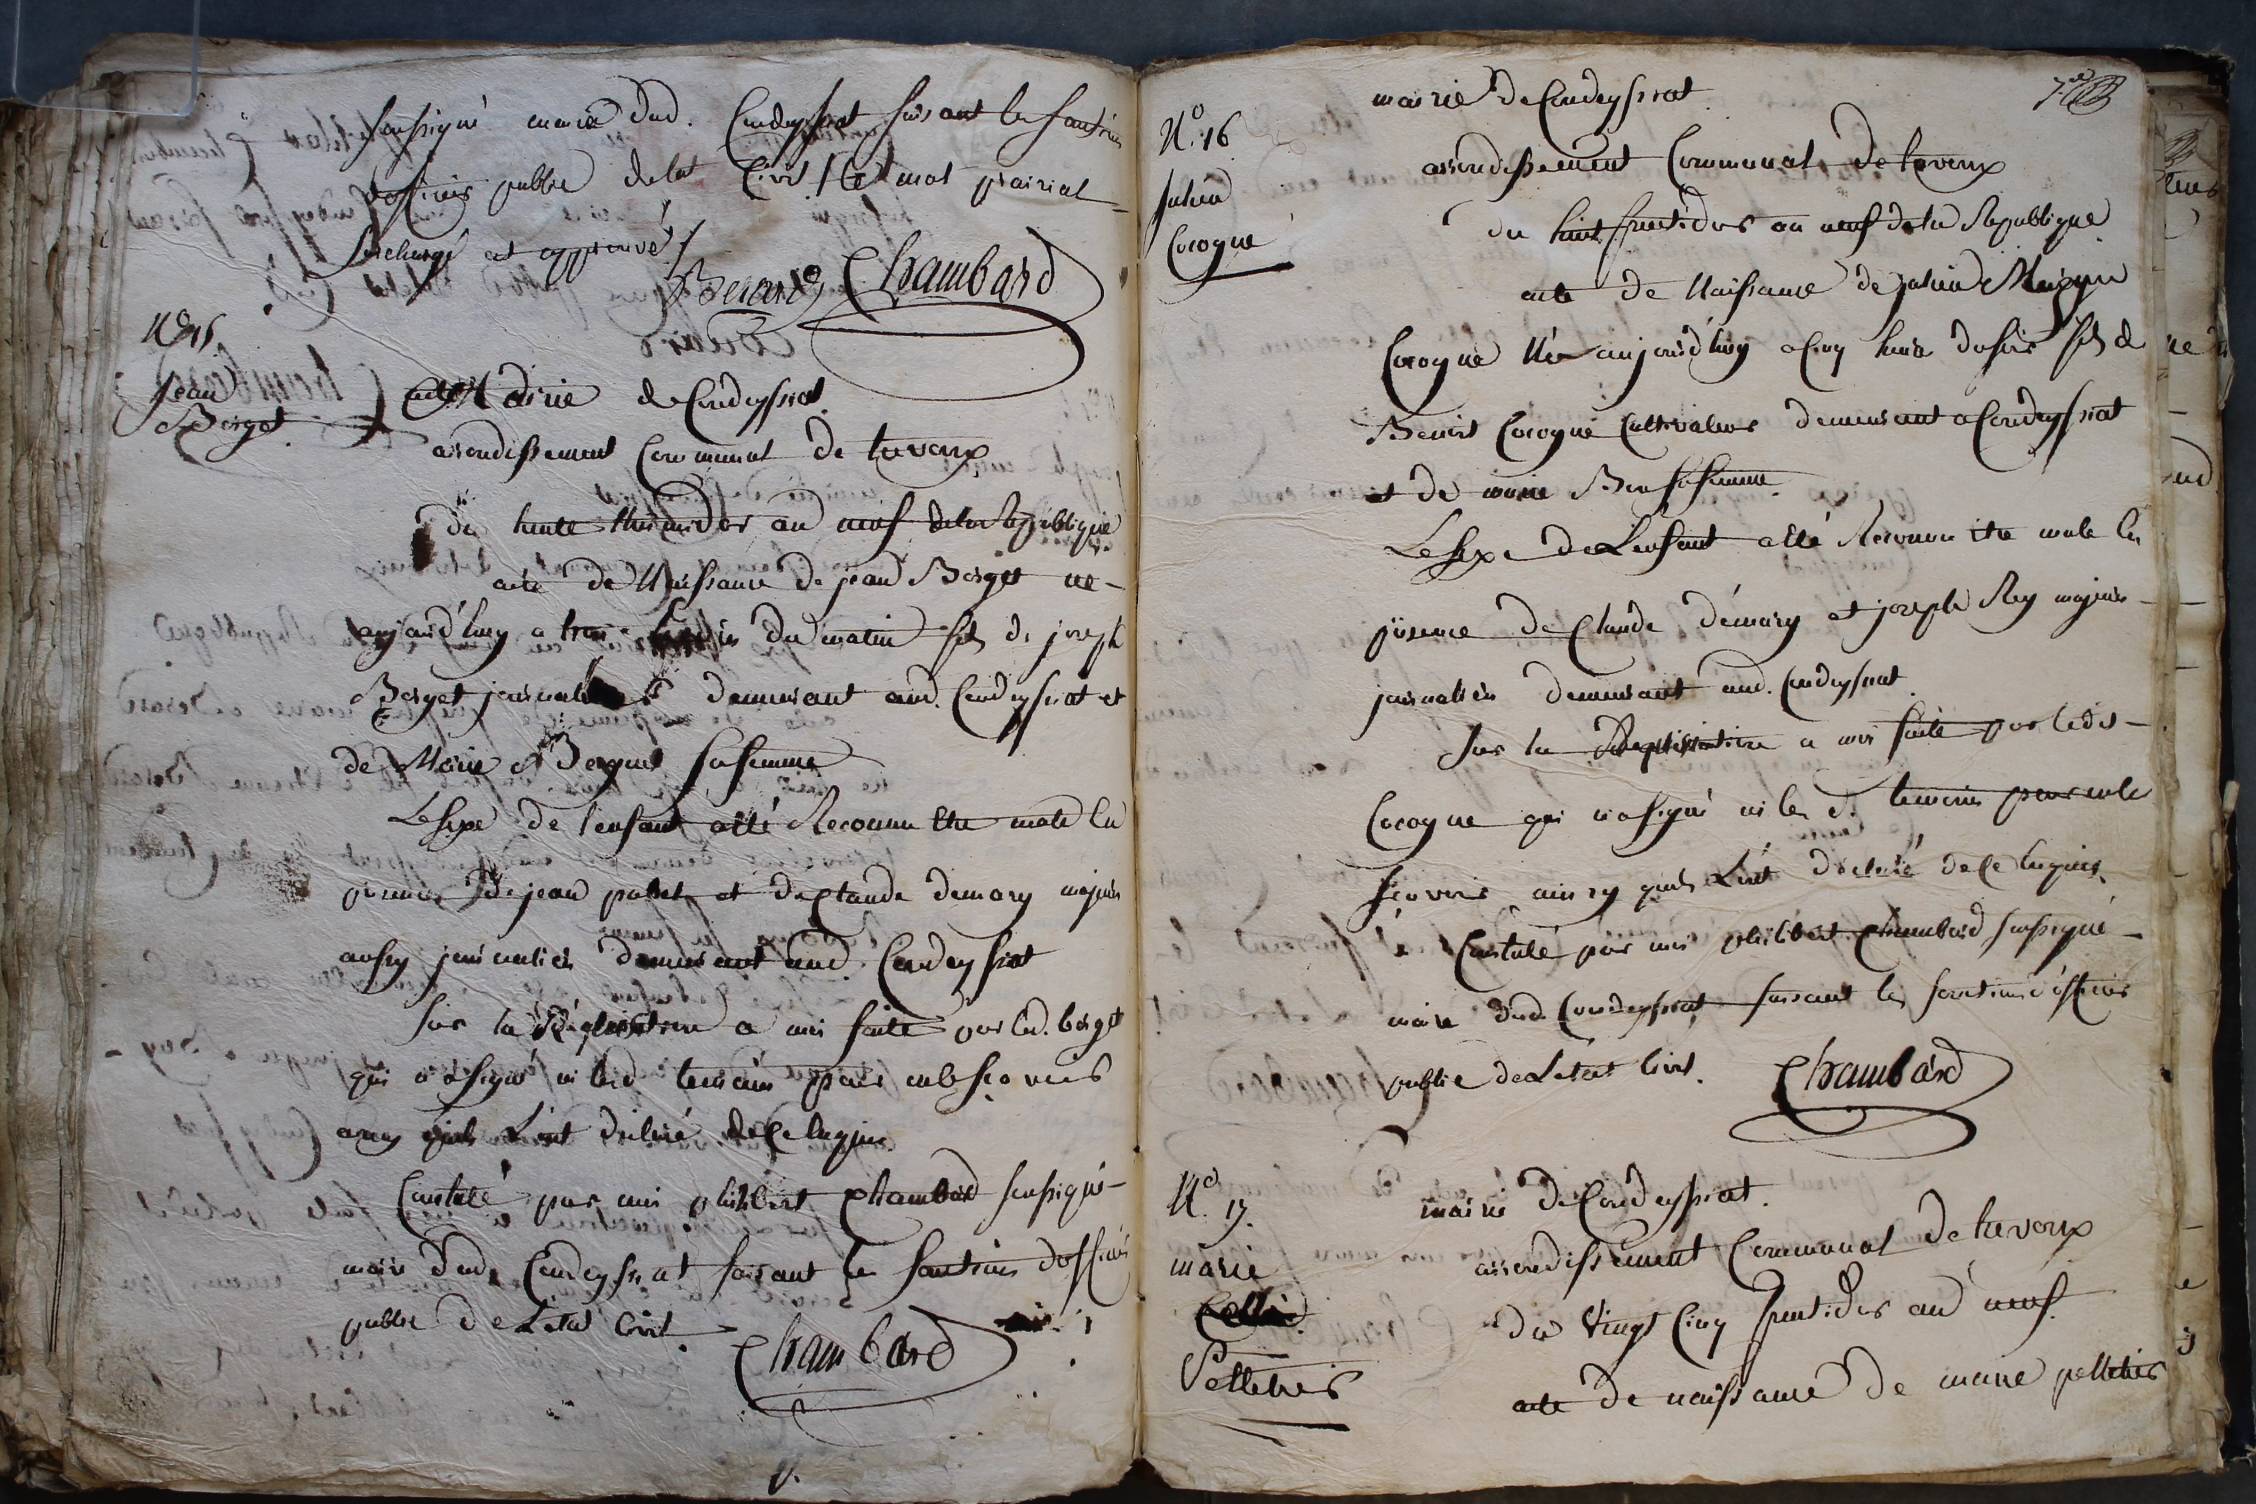 soussigné maire dud. Condeyssiat faisant les fonctions
dofficier public deletat Civil / Le mot prairial
surchargé est approuvé /
Berard Chambard
N° 15
Jean
Berget
Mairie de Condeyssiat
arrondissement Communal de trevoux
du trente thermidor an neuf dela Republique
acte de Naissance de jean Berget né
aujourd'huy a trois heures du matin fils de joseph
Berget journalier demeurant aud. Condeyssiat et
de Marie sa femme
Le sexe de l'enfant a été Reconnu etre male en
presence De jean pobel et de Claude demary majeurs
aussy journaliers demeurant aud. Condeyssiat
Sur la Réquisition a moi faite par led. berget
qui n'a signé ni lesd temoins pour ne le sçavoir
ainsy quils L'ont déclaré de Ce enquis
Constaté par moi philibert Chambard soussigné
maire dud. Condeyssiat faisant les fonctions dofficier
public de L'etat Civil
Chambard
7e
mairie de Condeyssiat
N° 16
Julien
Cocogne
arrondissement Communal de trevoux
du huit fructidor an neuf de la Republique
acte de Naissance de julien
Cocogne Né aujourd'huy a Cinq heures du soir fils de
Benoit Cocogne Cultivateur demeurant a Condeyssiat
et de marie sa femme
Le sexe de L'enfant a été Reconnu etre male en
présence de Claude démary et joseph Rey majeurs
journaliers demeurant aud. Condeyssiat
Sur la Réquisition a moi faite par ledit
Cocogne qui n'a signé ni les d. temoins pour ne le
sçavoir ainsy quils L'ont déclaré de Ce enquis
Constaté par moi philibert Chambard soussigné
maire dud. Condeyssiat faisant les fonctions d'officier
public de L'etat Civil.
Chambard
N° 17.
marie
Pelletier
mairie de Condeyssiat.
arrondissement Communal de trevoux
du vingt Cinq fructidor an neuf
acte de naissance de marie pelletier